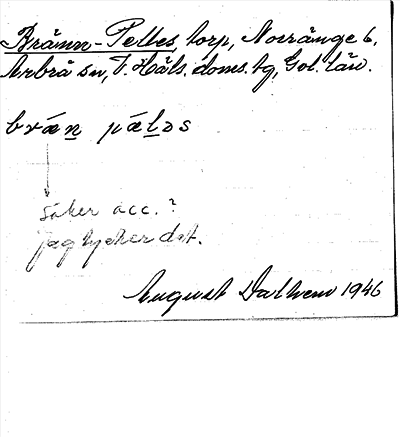 Brämn-Pelles, torp, Norränge 6,
Arbrå sn, V. Häls. doms. tg, Gvl. län.
bræ̀n pæləs
säker acc.?
jag tycker det.
August Dalhem 1946